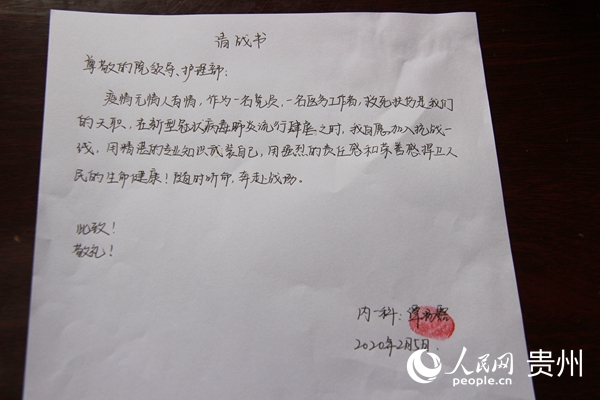 请战书
尊敬的院领导、护理部：
疫情无情人有情，作为一名党员，一名医务工作者，救死扶伤是我们
的天职，在新型冠状病毒肺炎流行肆虐之时，我自愿加入抗战一
线，用精湛的专业知识武装自己，用强烈的责任感和荣誉感捍卫人
民的生命健康！随时听命，奔赴战场。
此致！
敬礼！
内一科：
2020年2月5日.
人民网 贵州
people.cn